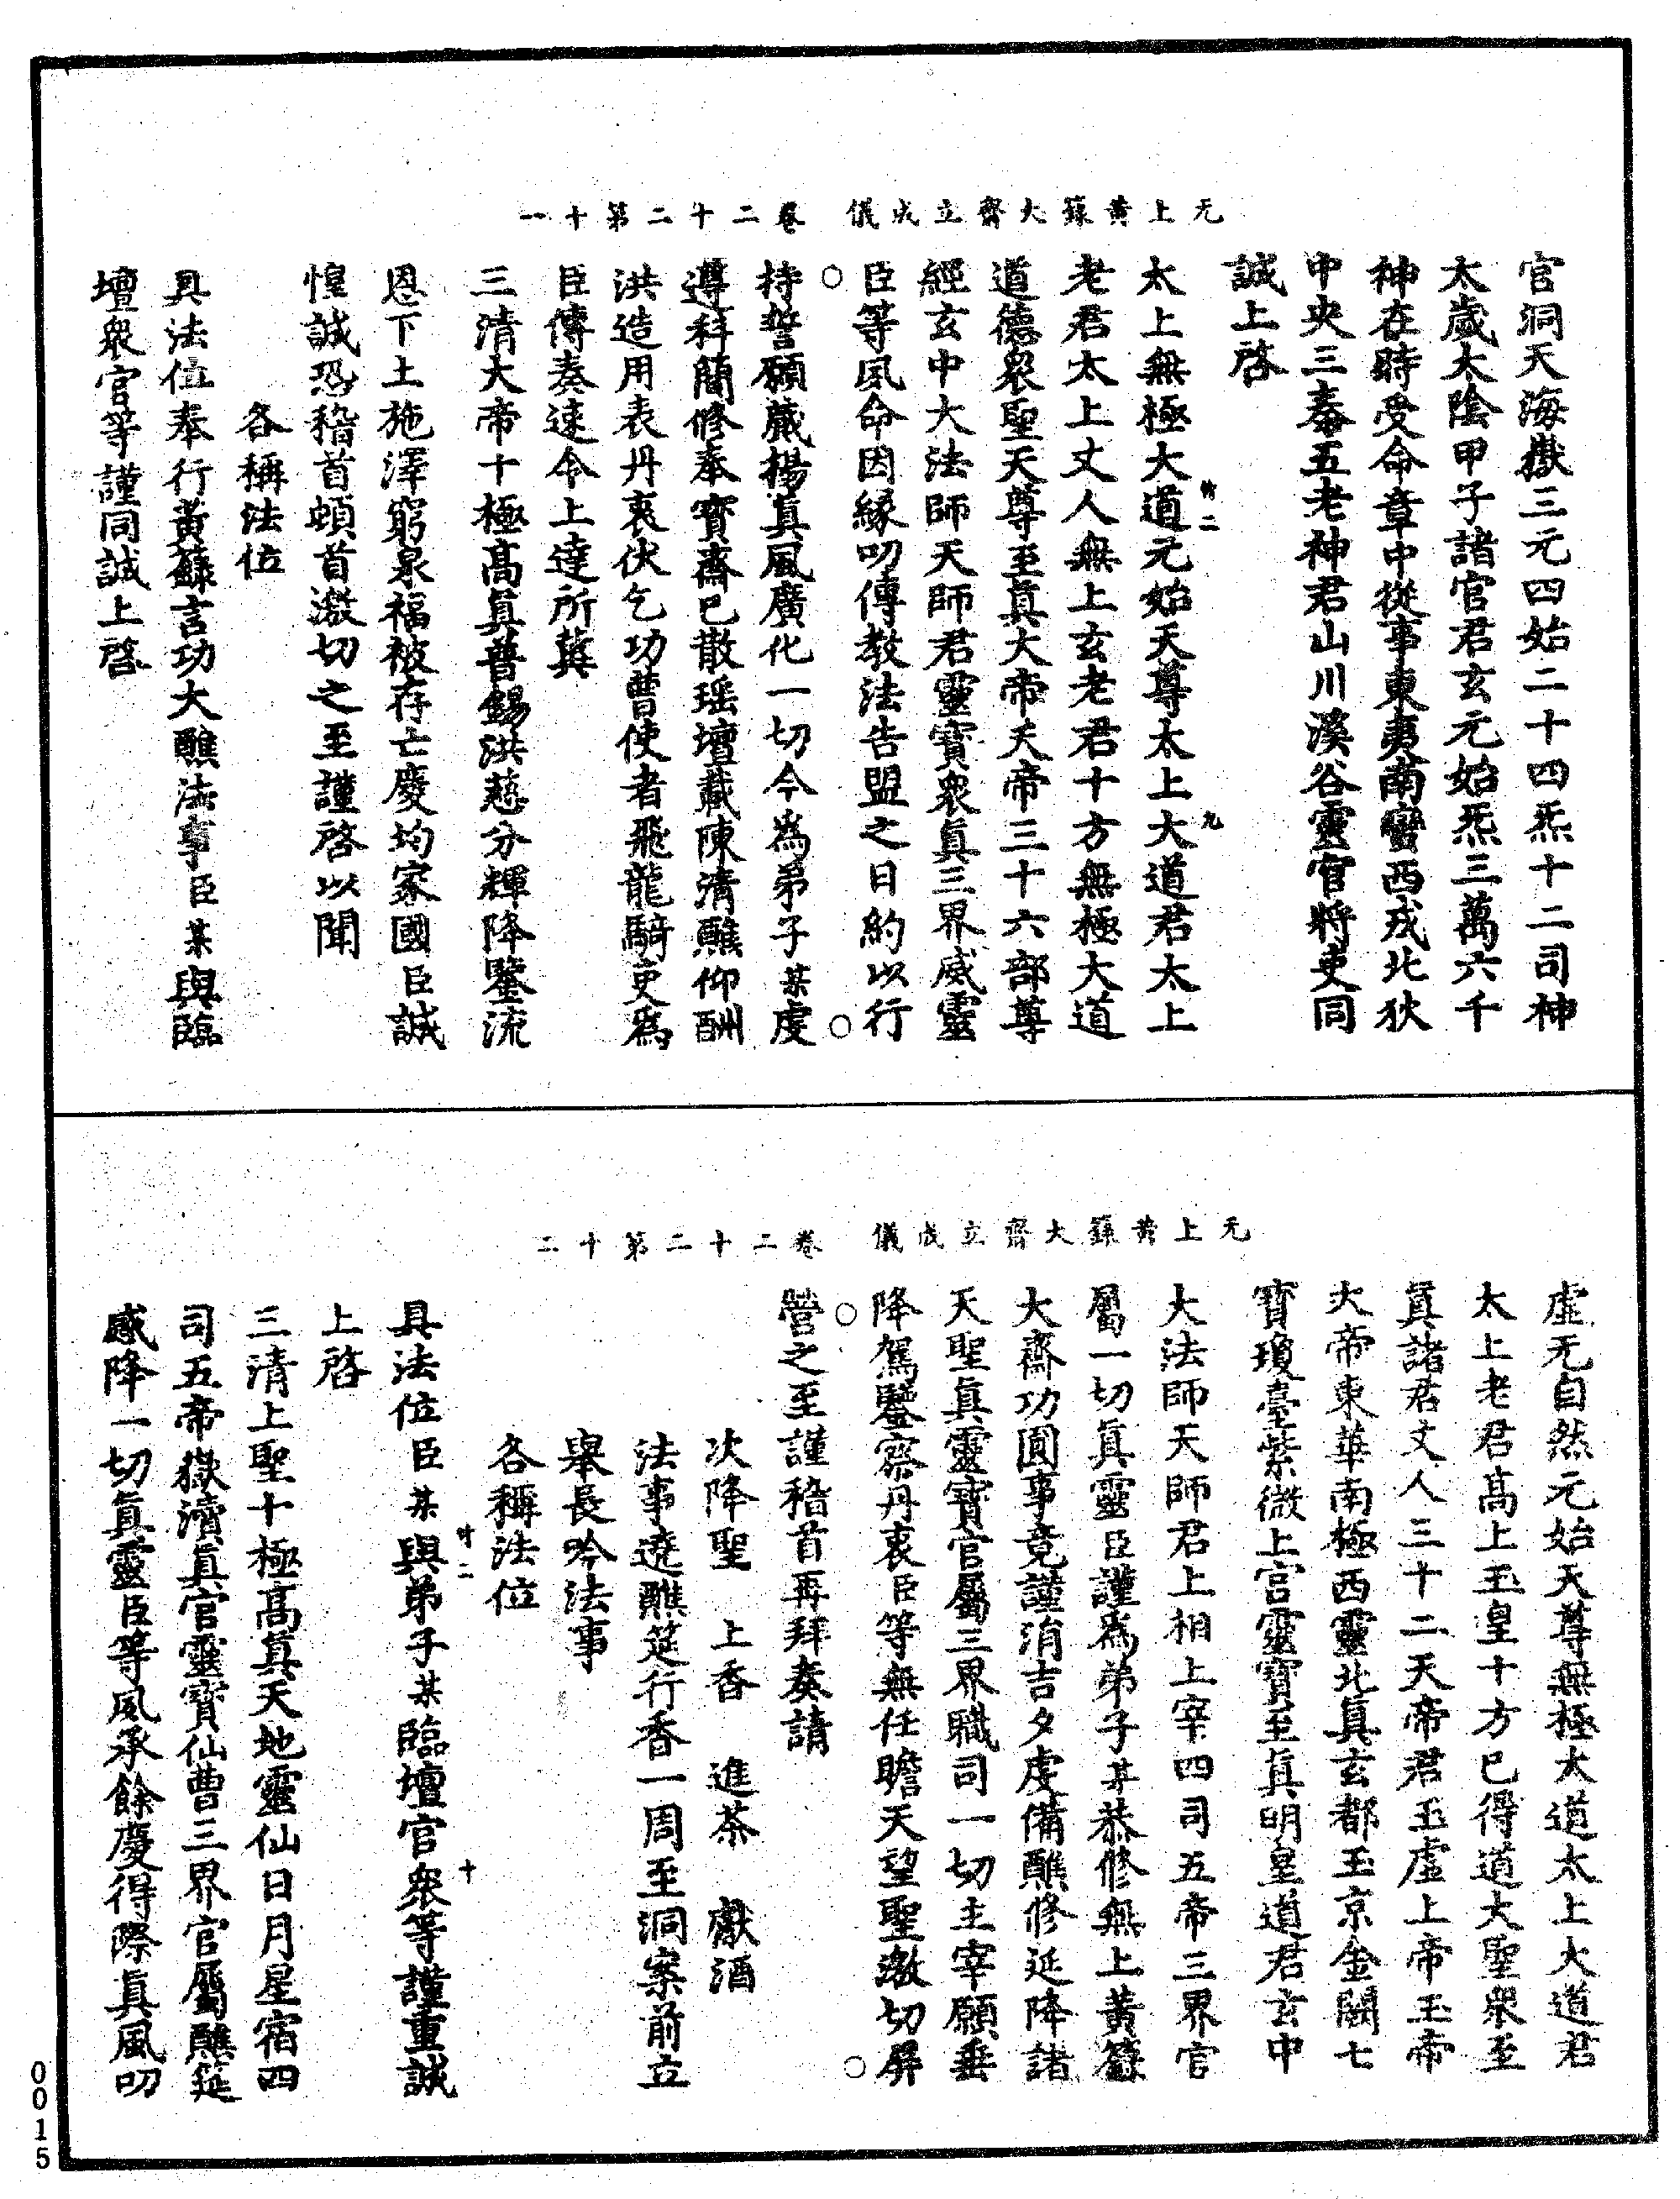 无上黄籙大齋立成儀 卷二十二第十一
官洞天海嶽三元四始二十四炁十二司神
太歲太陰甲子諸官君玄元始炁三萬六千
神在時受命章中從事東夷南蠻西戎北狄
中央三秦五老神君山川溪谷靈官將吏同
誠上啓
太上無極大道元始天尊太上大道君太上
老君太上丈人無上玄老君十方無極大道
道德衆聖天尊至真大帝天帝三十六部尊
經玄中大法師天師君靈寶衆真三界威靈
臣等夙命因緣叨傳教法告盟之日約以行
持誓願葳揚真風廣化一切今為弟子某虔
遵科簡修奉寶齋已散瑤壇蕆陳清醮仰酬
洪造用表丹衷伏乞功曹使者飛龍騎吏為
臣傳奏速令上達所冀
三清大帝十極高真普錫洪慈分輝降鑒流
恩下土施澤窮泉福被存亡慶均家國臣誠
惶誠恐稽首頓首激切之至謹啓以聞
各稱法位
具法位奉行黃籙言功大醮法事臣某與臨
壇衆官等謹同誠上啓
无上黄籙大齋立成儀 卷二十二第十二
虛无自然元始天尊無極大道太上大道君
太上老君高上玉皇十方已得道大聖衆至
真諸君丈人三十二天帝君玉虛上帝玉帝
大帝東華南極西靈北真玄都玉京金闕七
寶瓊臺紫微上宮靈寶至真明皇道君玄中
大法師天師君上相上宰四司五帝三界官
屬一切真靈臣謹為弟子某恭修無上黃籙
大齋功圓事竟謹涓吉夕虔備醮修延降諸
天聖真靈寶官屬三界職司一切主宰願垂
降駕鑒察丹衷臣等無任瞻天望聖激切屏
營之至謹稽首再拜奏請
次降聖 上香 進茶 獻酒
法事遶醮筵行香一周至洞案前立
舉長吟法事
各稱法位
具法位臣某與弟子某臨壇官衆等謹重誠
上啓
三清上聖十極高真天地靈仙日月星宿四
司五帝嶽瀆真官靈寶仙曹三界官屬醮筵
感降一切真靈臣等夙承餘慶得際真風叨
0015